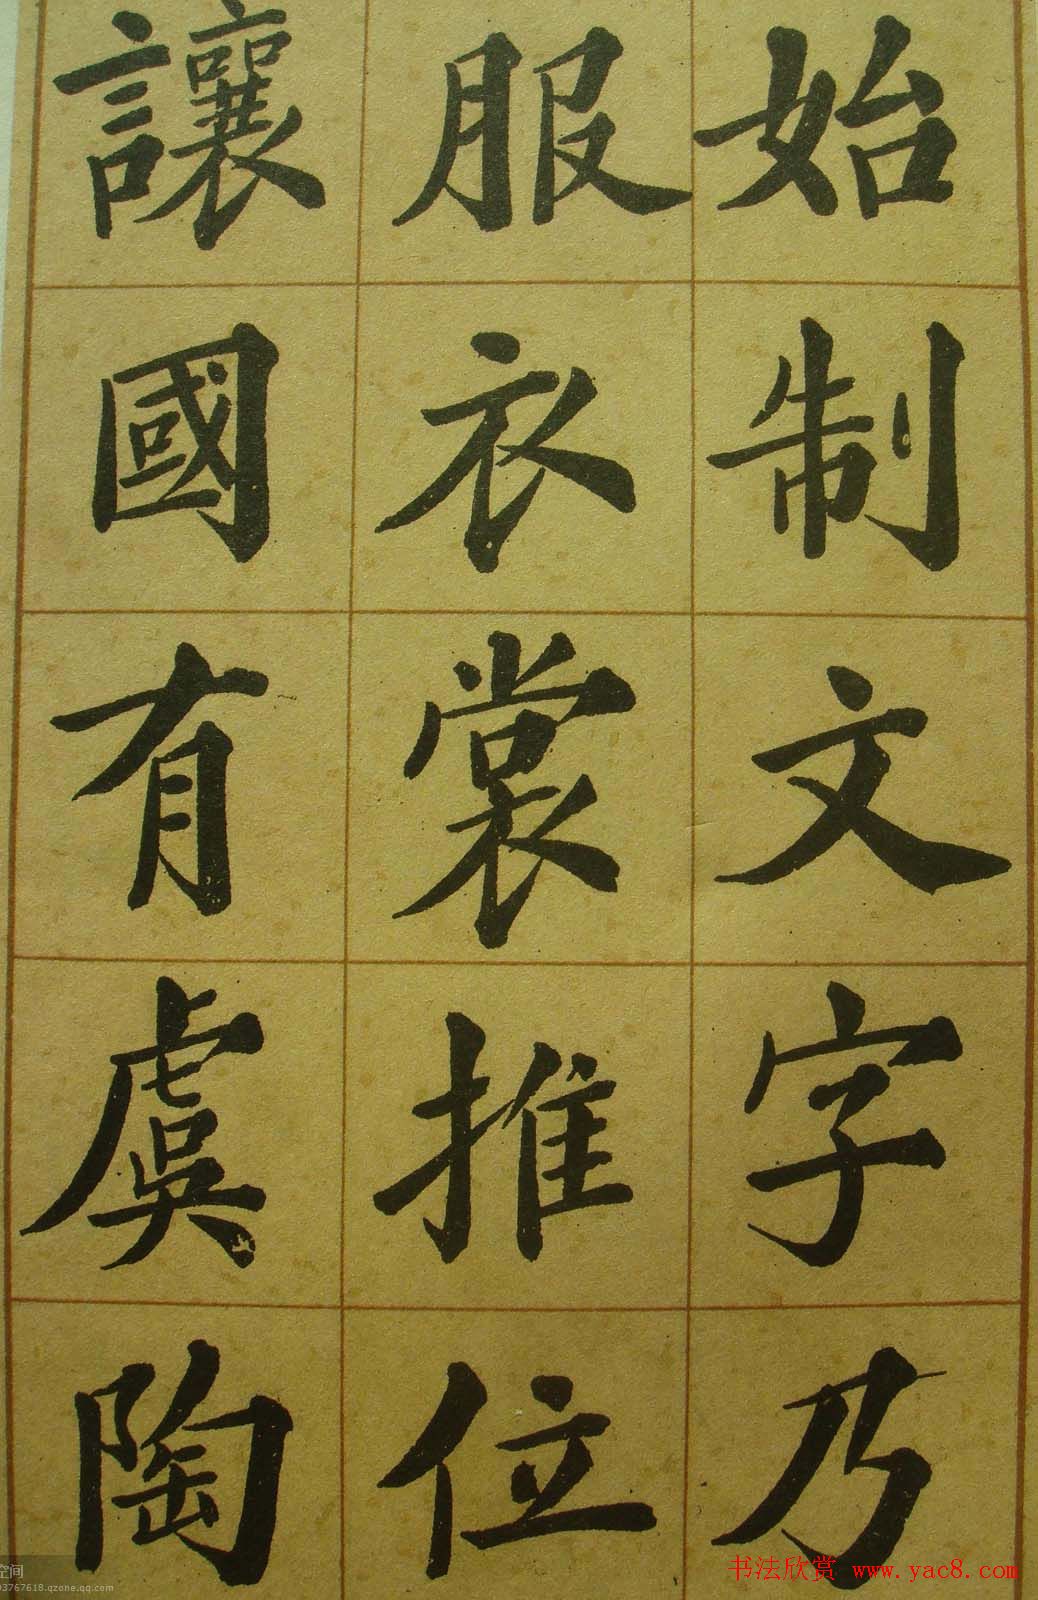 始制文字乃
服衣裳推位
讓國有虞陶
书法欣赏 www.yac8.com
空间
03767618.qzone.qq.com